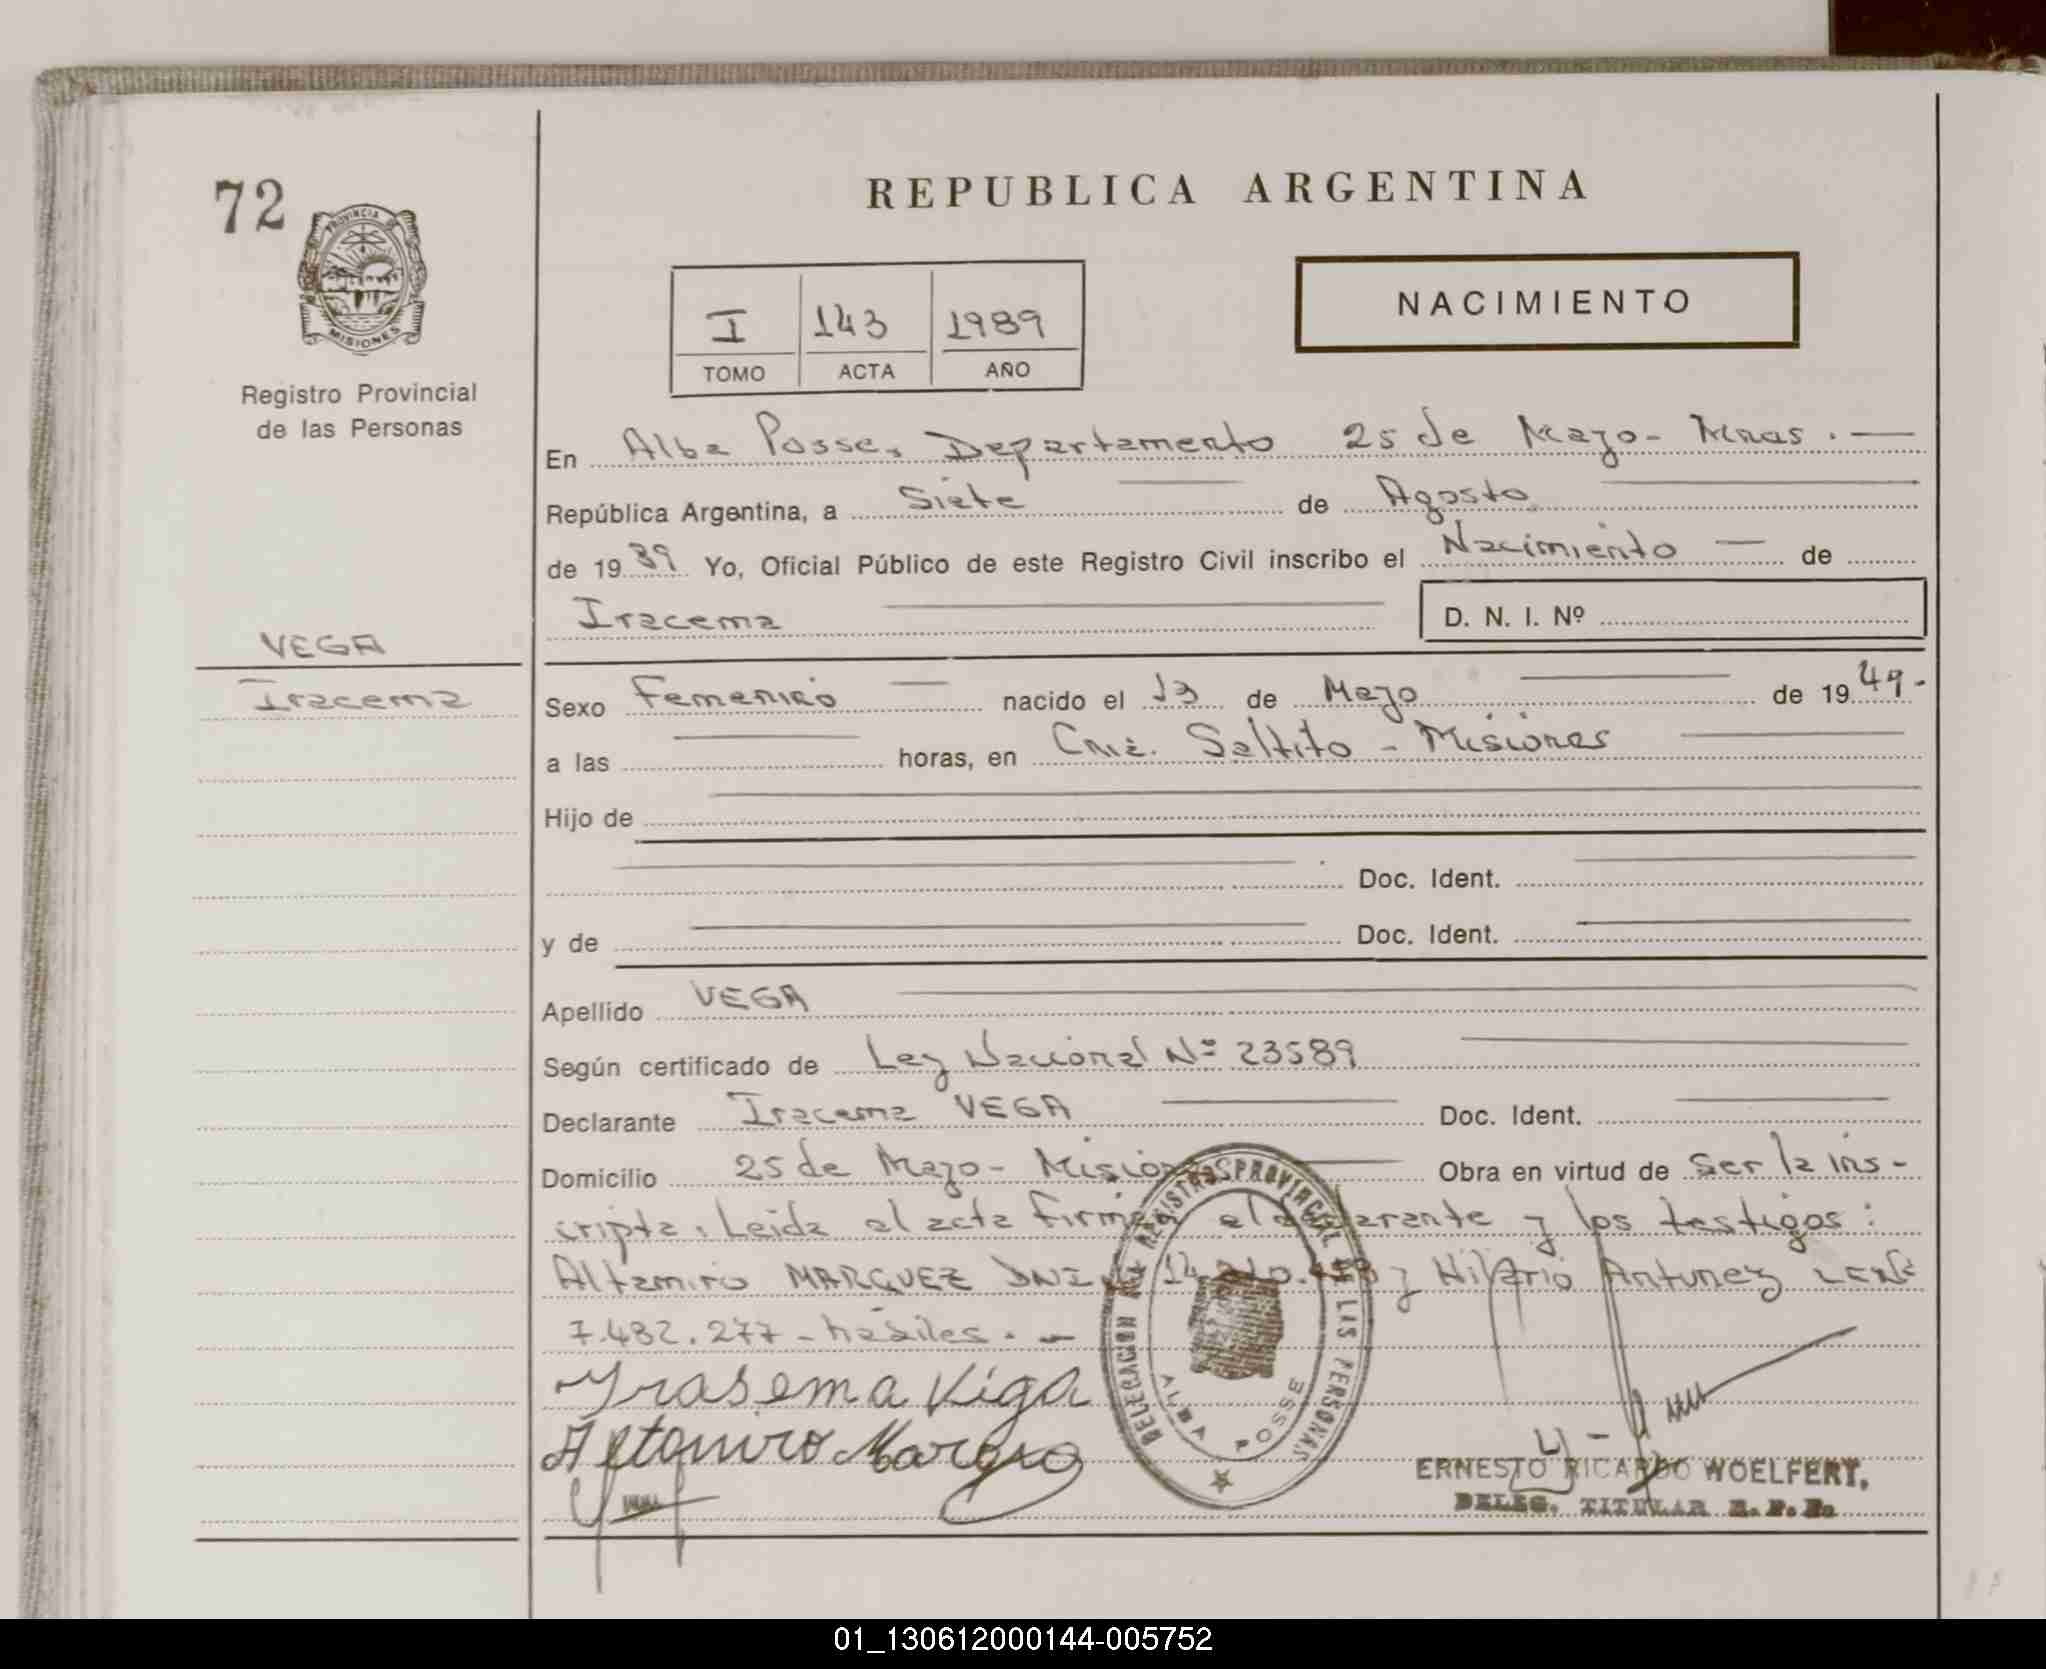 72
PROVINCIA DE
MISIONES
Registro Provincial
de las Personas
VEGA
Iracema
REPUBLICA ARGENTINA
I 143 1989
TOMO ACTA AÑO
NACIMIENTO
En Alba Posse, Departamento 25 de Mayo - Mnes. -
República Argentina, a Siete de Agosto
de 19 89 Yo, Oficial Público de este Registro Civil inscribo el Nacimiento - de
Iracema
D. N. I. Nº
Sexo Femenino nacido el 13 de Mayo de 19 49.-
a las horas, en Cnia. Saltito - Misiones
Hijo de
Doc. Ident.
y de Doc. Ident.
Apellido VEGA
Según certificado de Ley Nacional Nº 23589
Declarante Iracema VEGA Doc. Ident.
Domicilio 25 de Mayo - Misiones Obra en virtud de ser la ins-
cripta. Leida el acta firman el declarante y los testigos:
Altamiro MARQUEZ DNI 14. y Hilario Antunez
7.482.277 - habiles. -
Yrasema Viga
Altamiro
DELEGACION REGISTRO PROVINCIAL DE LAS PERSONAS
ALBA POSSE
ERNESTO RICARDO WOELFERT,
DELEG. TITULAR R. P. P.
01_130612000144-005752